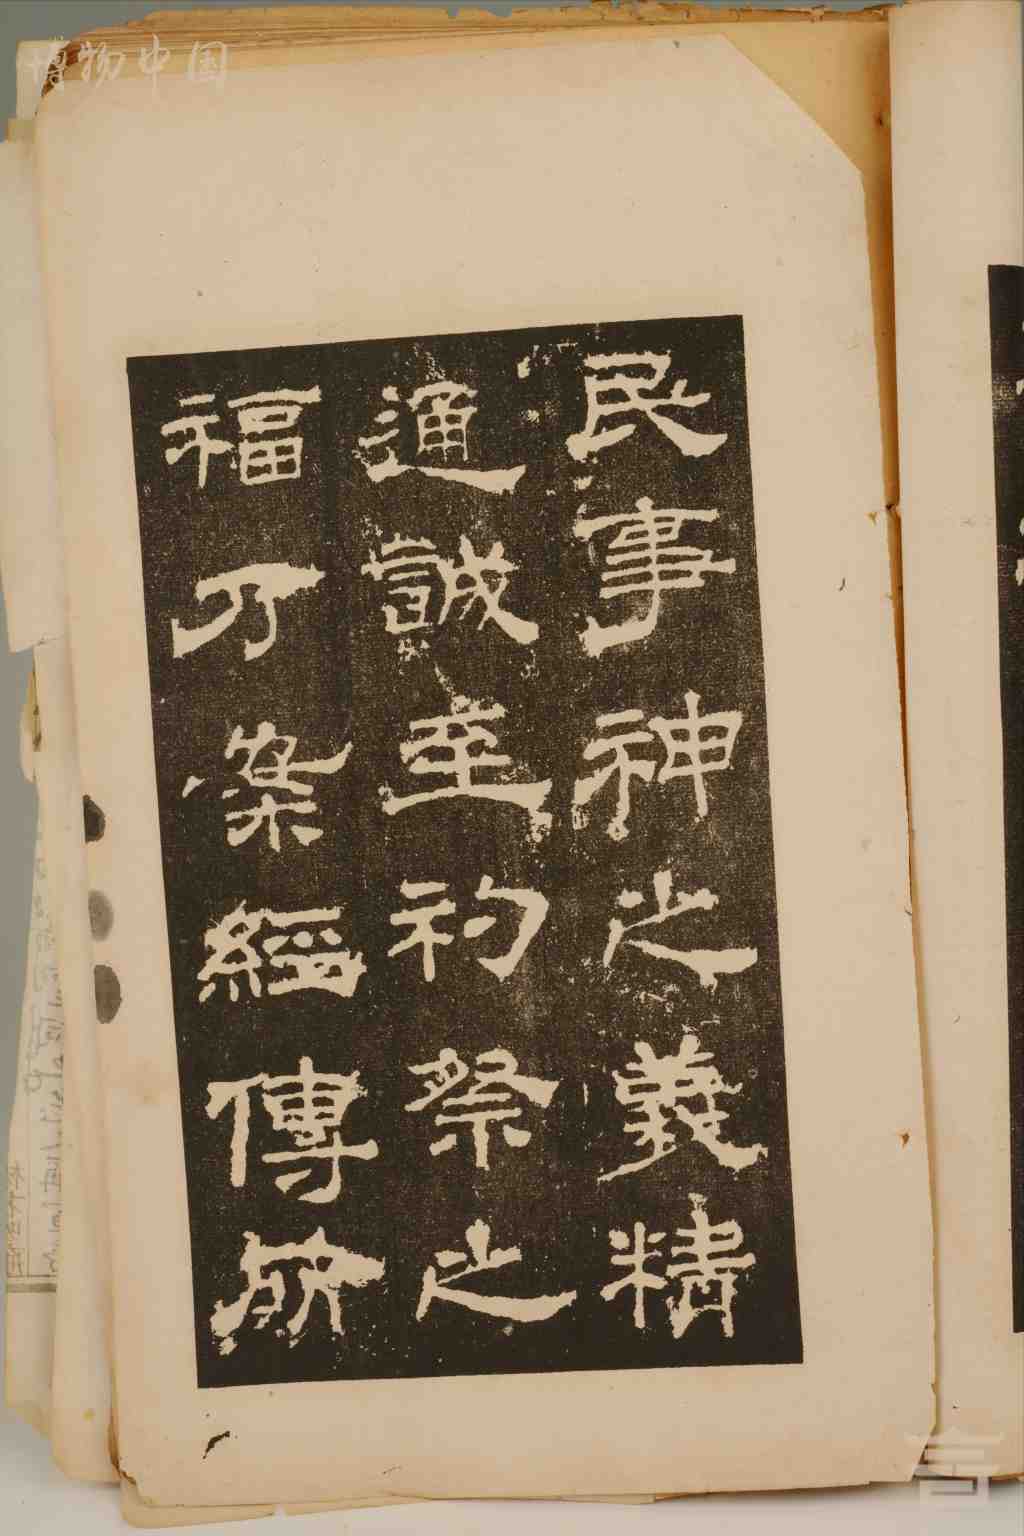 博物中国
民事神之義精
通誠至礿祭之
福乃案經傳所